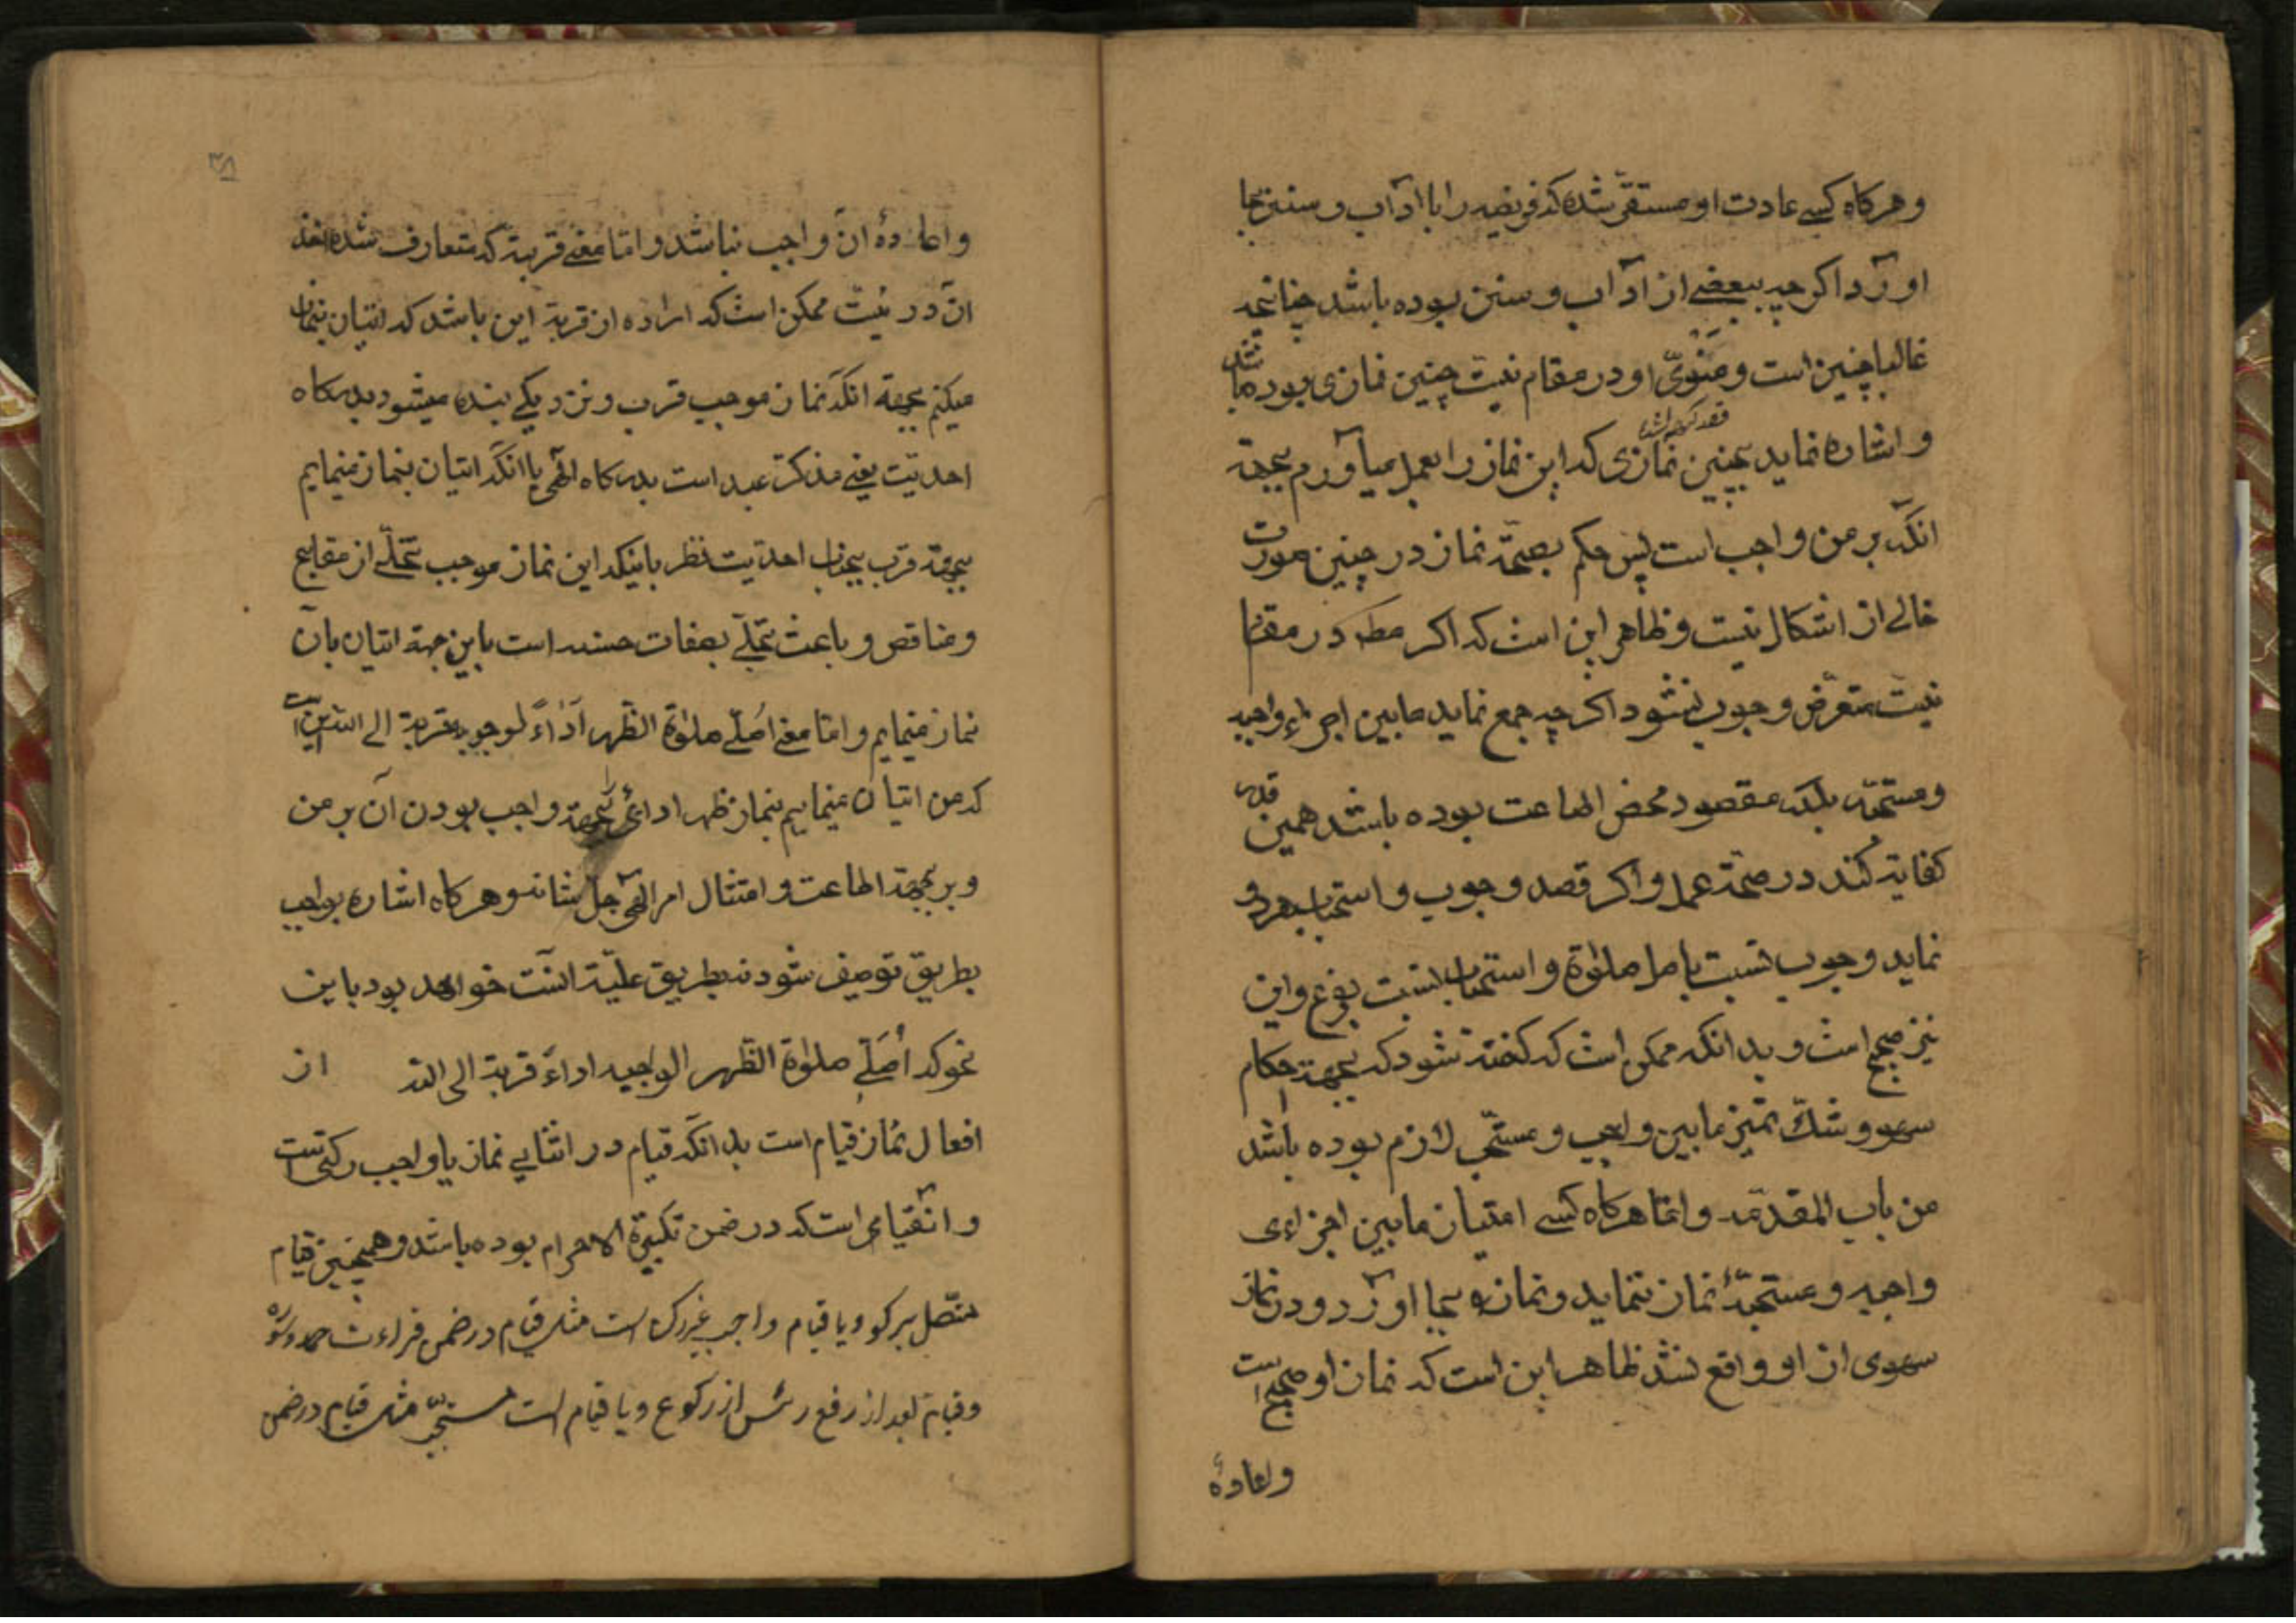 وهركاه كسے عادت او مستقرّ شده كه فريضه را با آداب و سنن بجا
اورد اكر چه ببعضے از آداب و سنن بوده باشد چنانچه
غالبا چنين است و مَنْوىّ او در مقام نيت چنين نمازى بوده باشد
و اشاره نمايد بچنين نمازى كه اين نماز را بعمل مياورم بجهة
انكه بر من واجب است پس حكم بصحّة نماز در چنين صورت
خالے از اشكال نيست و ظاهر اين است كه اكر در مقام
نيت متعرّض وجوب نشود اكر چه جمع نمايد مابين اجزاء واجبه
و مستحبّه بلكه مقصود محض اطاعت بوده باشد همين قدر
كفاية كند در صحّة عمل و اكر قصد وجوب و استحباب هر دو
نمايد وجوب نسبت باصل صلوٰة و استحباب نسبت بفرع و اين
نيز صحيح است و بدانكه ممكن است كه كفته شود كه بجهة احكام
سهو و شكّ تميز مابين واجب و مستحبّ لازم بوده باشد
من باب المقدّمه و امّا هركاه كسے امتياز مابين اجزاءى
واجبه و مستحبّهٔ نماز ننمايد و نماز بجا اورد و در نماز
سهوى از او واقع نشد ظاهر اين است كه نماز او صحيح است
واعادهٔ
٣٨
واعادهٔ ان واجب نباشد و امّا معنے قربة كه متعارف شده
ان در نيّت ممكن است كه اراده از قربة اين باشد كه اتيان بنماز
ميكنم بجهة انكه نماز موجب قرب و نزديكے بنده ميشود بدركاه
احديّت يعنے مذكّر عبد است بدركاه الٰهى يا انكه اتيان بنماز مينمايم
بجهة قرب بجناب احديّت نظر باينكه اين نماز موجب تخلّے از مقابح
و مناقص و باعث تحلّے بصفات حسنه است باين جهة اتيان بان
نماز مينمايم و امّا معنے اصلّے صلوٰة الظّهر اداءً لوجوبه قربة الے اللّه اين است
كه من اتيان مينمايم بنماز ظهر ادائى بجهة واجب بودن ان بر من
و بر بجهة اطاعت و امتثال امر الٰهى جلّ شانه و هركاه اشاره بواجب
بطريق توصيف شود نه بطريق علّيّة انسب خواهد بود باين
نحو كه اُصَلّے صلوٰة الظّهر الواجبه اداءً قربة الى اللّه از
افعال نماز قيام است بدانكه قيام در اثنايے نماز يا واجب ركنى است
و ان قيامى است كه در ضمن تكبيرة الاحرام بوده باشد و همچنين قيام
متّصل بركوع و يا قيام واجب غير ركن است مثل قيام در ضمن قراءت حمد و سوره
و قيام بعد از رفع راس از ركوع و يا قيام است مستحبّ مثل قيام در ضمن